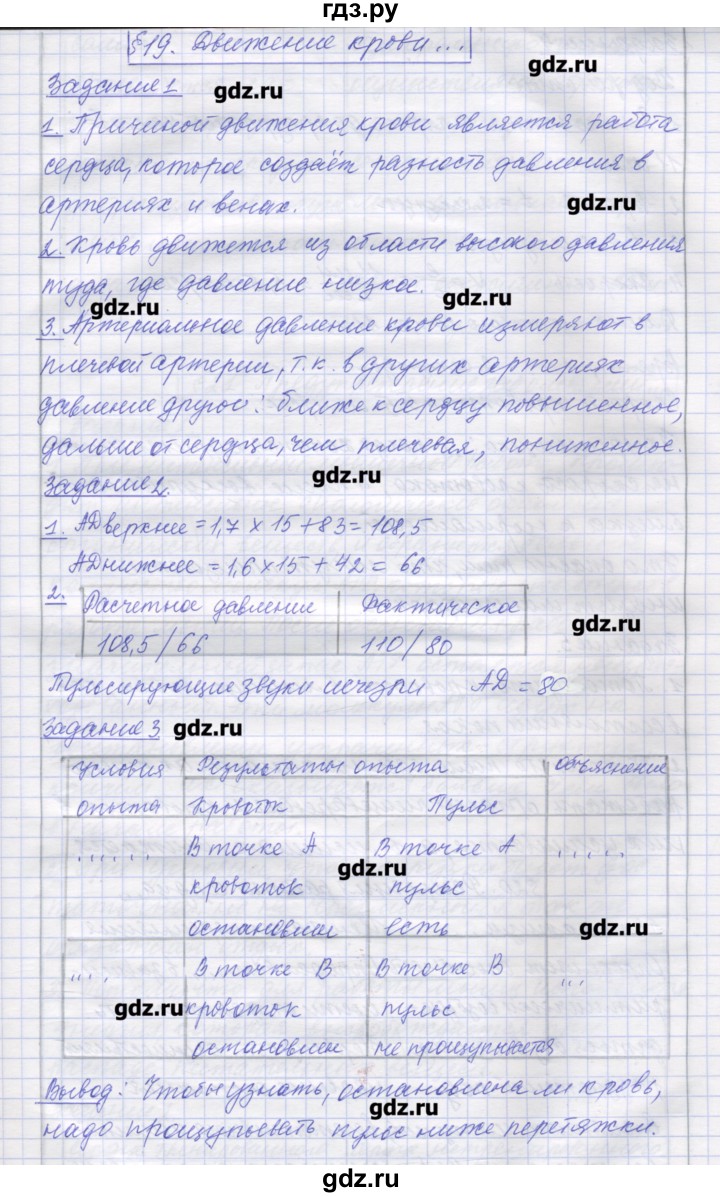 гдз.ру
§19. Движение крови...
gdz.ru
Задание 1
gdz.ru
1. Причиной движения крови является работа
сердца, которое создаёт разность давления в
артериях и венах.
gdz.ru
2. Кровь движется из области высокого давления
туда, где давление низкое.
gdz.ru
gdz.ru
3. Артериальное давление крови измеряют в
плечевой артерии, т.к. в других артериях
давление другое: ближе к сердцу повышенное,
дальше от сердца, чем плечевая, пониженное.
gdz.ru
Задание 2.
1. АДверхнее = 1,7 × 15 + 83 = 108,5
АДнижнее = 1,6 × 15 + 42 = 66
2. Расчетное давление Фактическое
gdz.ru
108,5/66 110/80
Пульсирующие звуки исчезли АД = 80
Задание 3 gdz.ru
Условия Результаты опыта объяснение
опыта Кровоток Пульс
,,,,,, В точке А В точке А ,,,,,
gdz.ru
кровоток пульс
остановлен есть
gdz.ru
,,,, В точке В В точке В ,,,
gdz.ru кровоток пульс
остановлен не прощупывается
Вывод: Чтобы узнать, остановлена ли кровь,
gdz.ru
надо прощупывать пульс ниже перетяжки.
gdz.ru